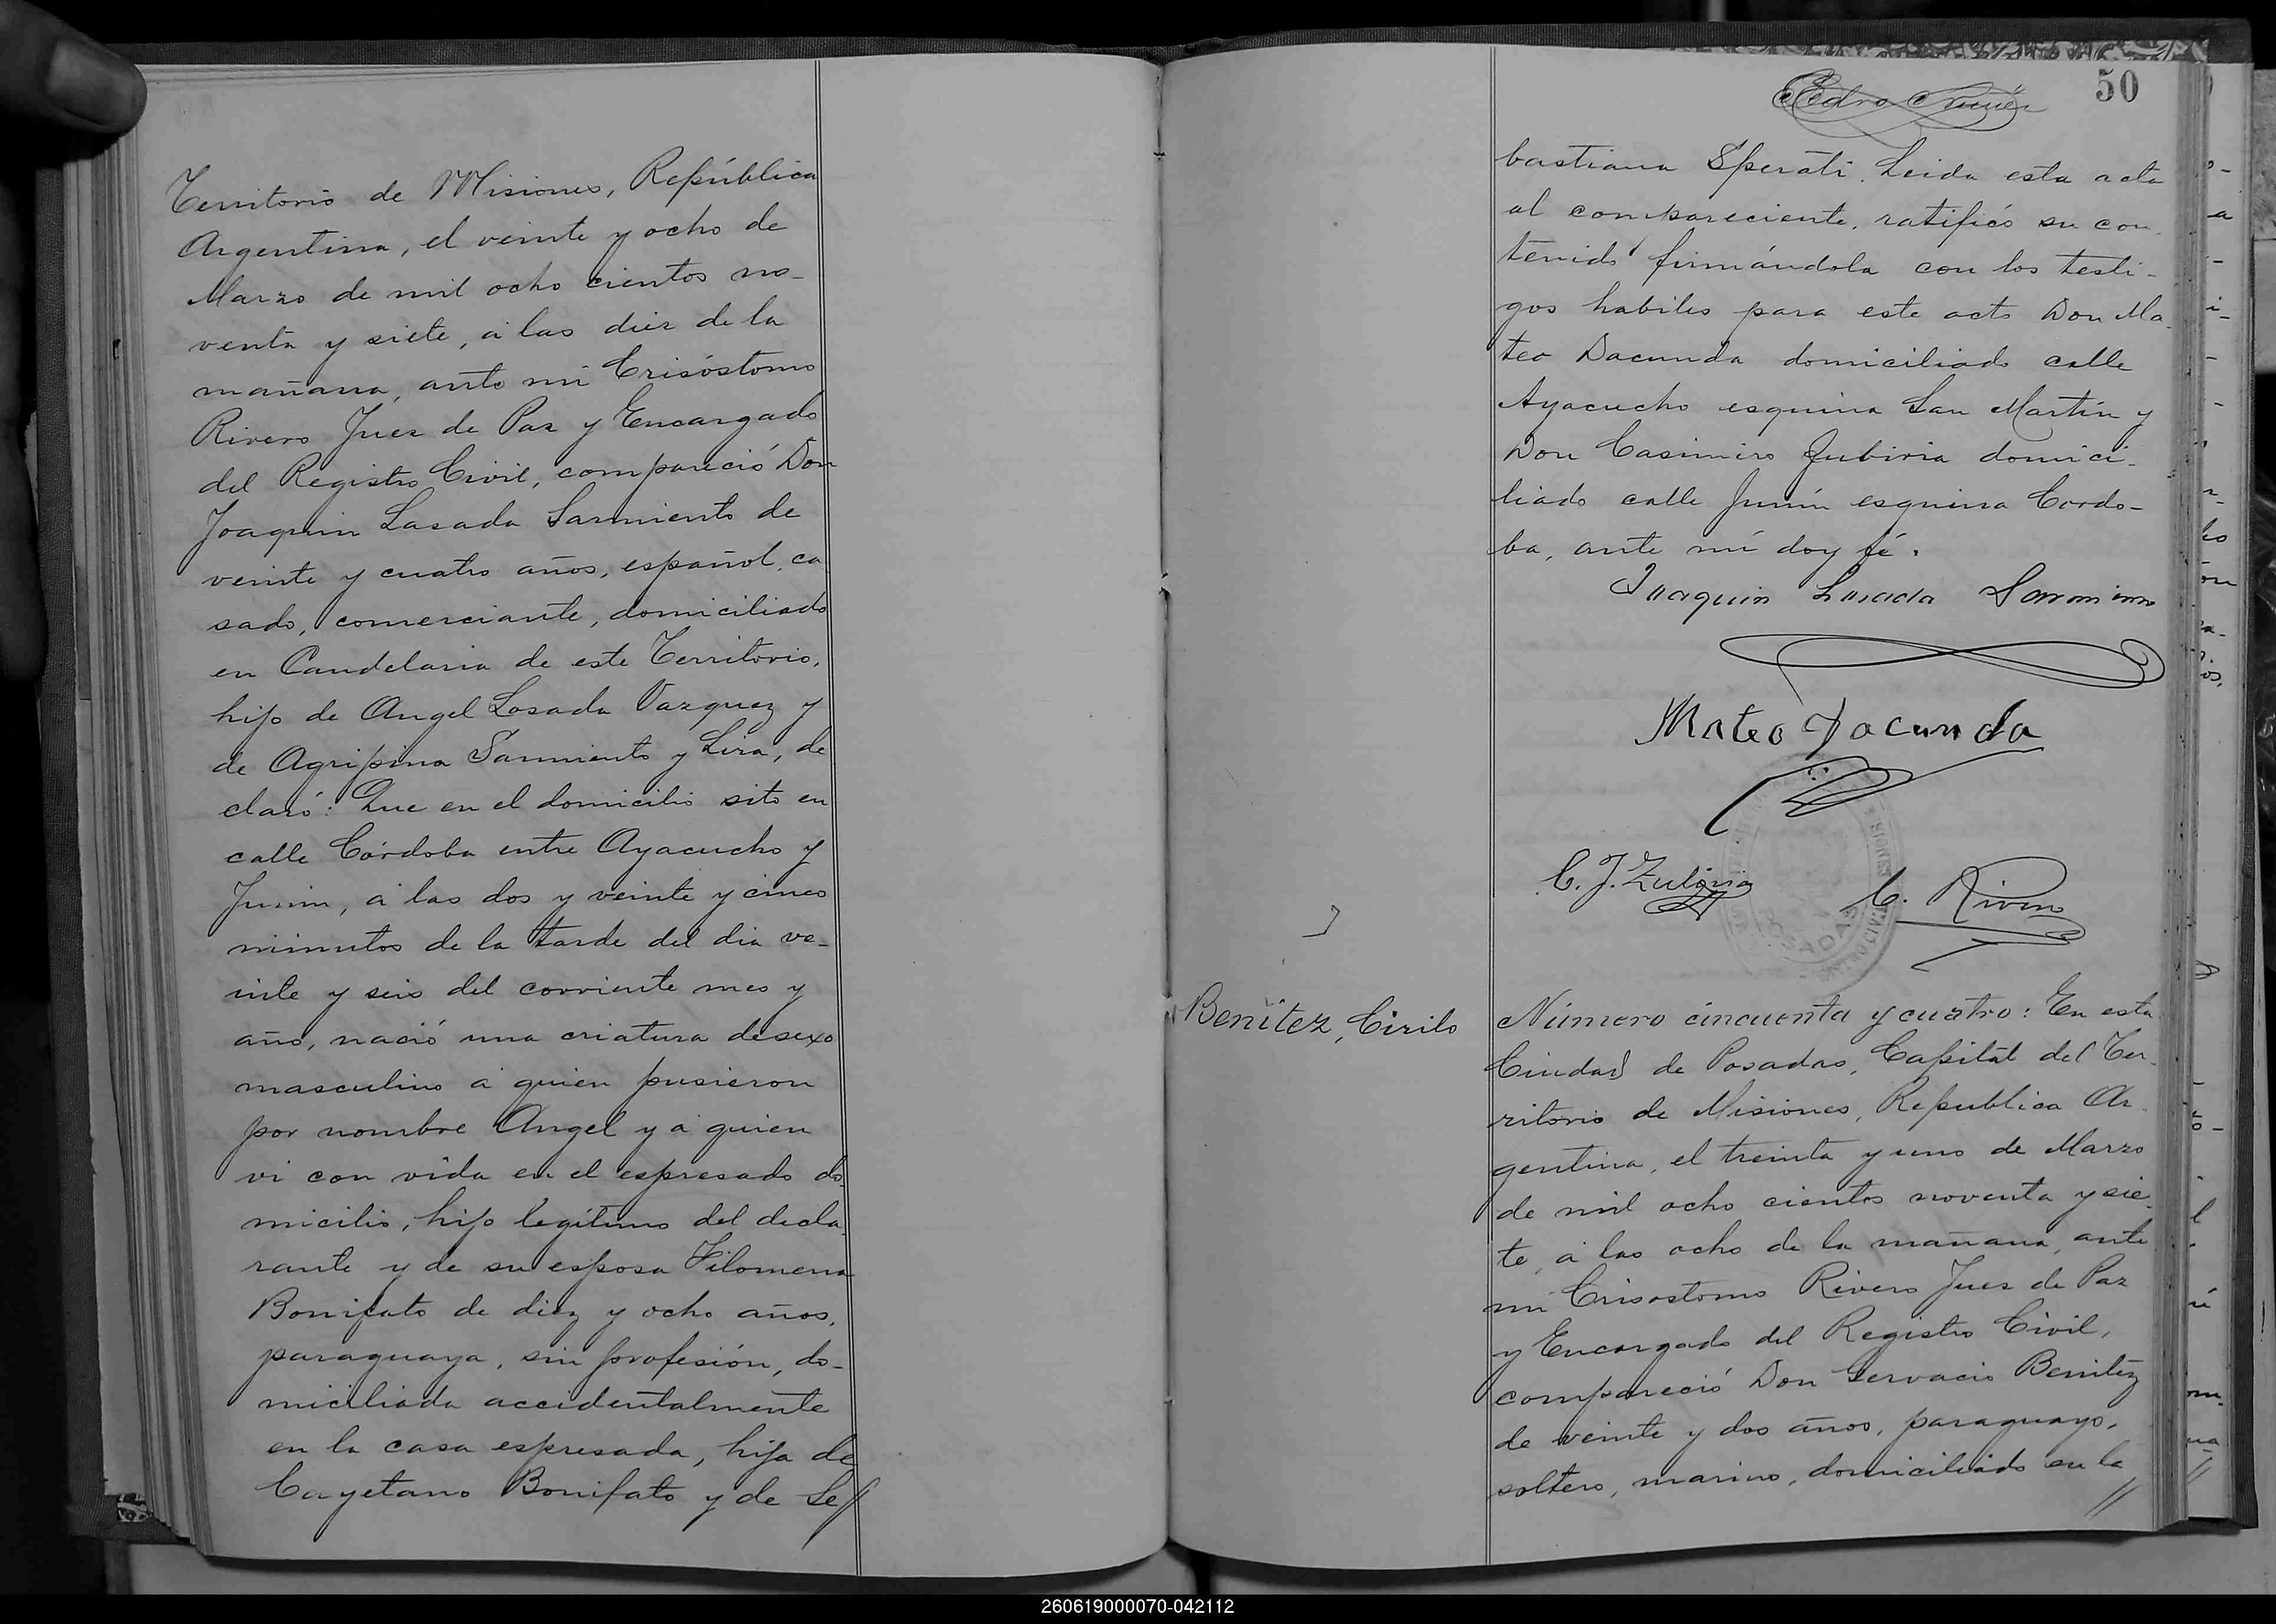 Territorio de Misiones, República
Argentina, el veinte y ocho de
Marzo de mil ocho cientos no-
venta y siete, á las diez de la
mañana, ante mi Crisóstomo
Rivero Juez de Paz y Encargado
del Registro Civil, compareció Don
Joaquin Lasada Sarmiento de
veinte y cuatro años, español, ca
sado, comerciante, domiciliado
en Candelaria de este Territorio,
hijo de Angel Losada Vazquez y
de Agripina Sarmiento y Lira, de
claró: Que en el domicilio sito en
calle Córdoba entre Ayacucho y
Junin, á las dos y veinte y cinco
minutos de la tarde del dia ve-
inte y seis del corriente mes y
año, nació una criatura de sexo
masculino á quien pusieron
por nombre Angel y á quien
vi con vida en el espresado do
micilio, hijo legítimo del decla
rante y de su esposa Filomena
Bonifato de diez y ocho años,
paraguaya, sin profesión, do-
miciliada accidentalmente
en la casa espresada, hija de
Cayetano Bonifato y de Se//
50
Pedro
bastiana Sperati. Leida esta acta
al compareciente, ratificó su con-
tenido firmándola con los testi-
gos habiles para este acto Don Ma-
teo Dacunda domiciliado calle
Ayacucho esquina San Martín y
Don Casimiro Zubiria domici-
liado calle Junín esquina Cordo-
ba, ante mí doy fé.
Joaquin Losada Sarmiento
Mateo Dacunda
C. J. Zubiria
C. Rivero
POSADAS
Benítez, Cirilo
Número cincuenta y cuatro: En esta
Ciudad de Posadas, Capital del Ter-
ritorio de Misiones, Republica Ar-
gentina, el treinta y uno de Marzo
de mil ocho cientos noventa y sie-
te, á las ocho de la mañana, ante
mi Crisostomo Rivero Juez de Paz
y Encargado del Registro Civil,
compareció Don Gervacio Benitez
de veinte y dos años, paraguayo,
soltero, marino, domiciliado en la
//
260619000070-042112